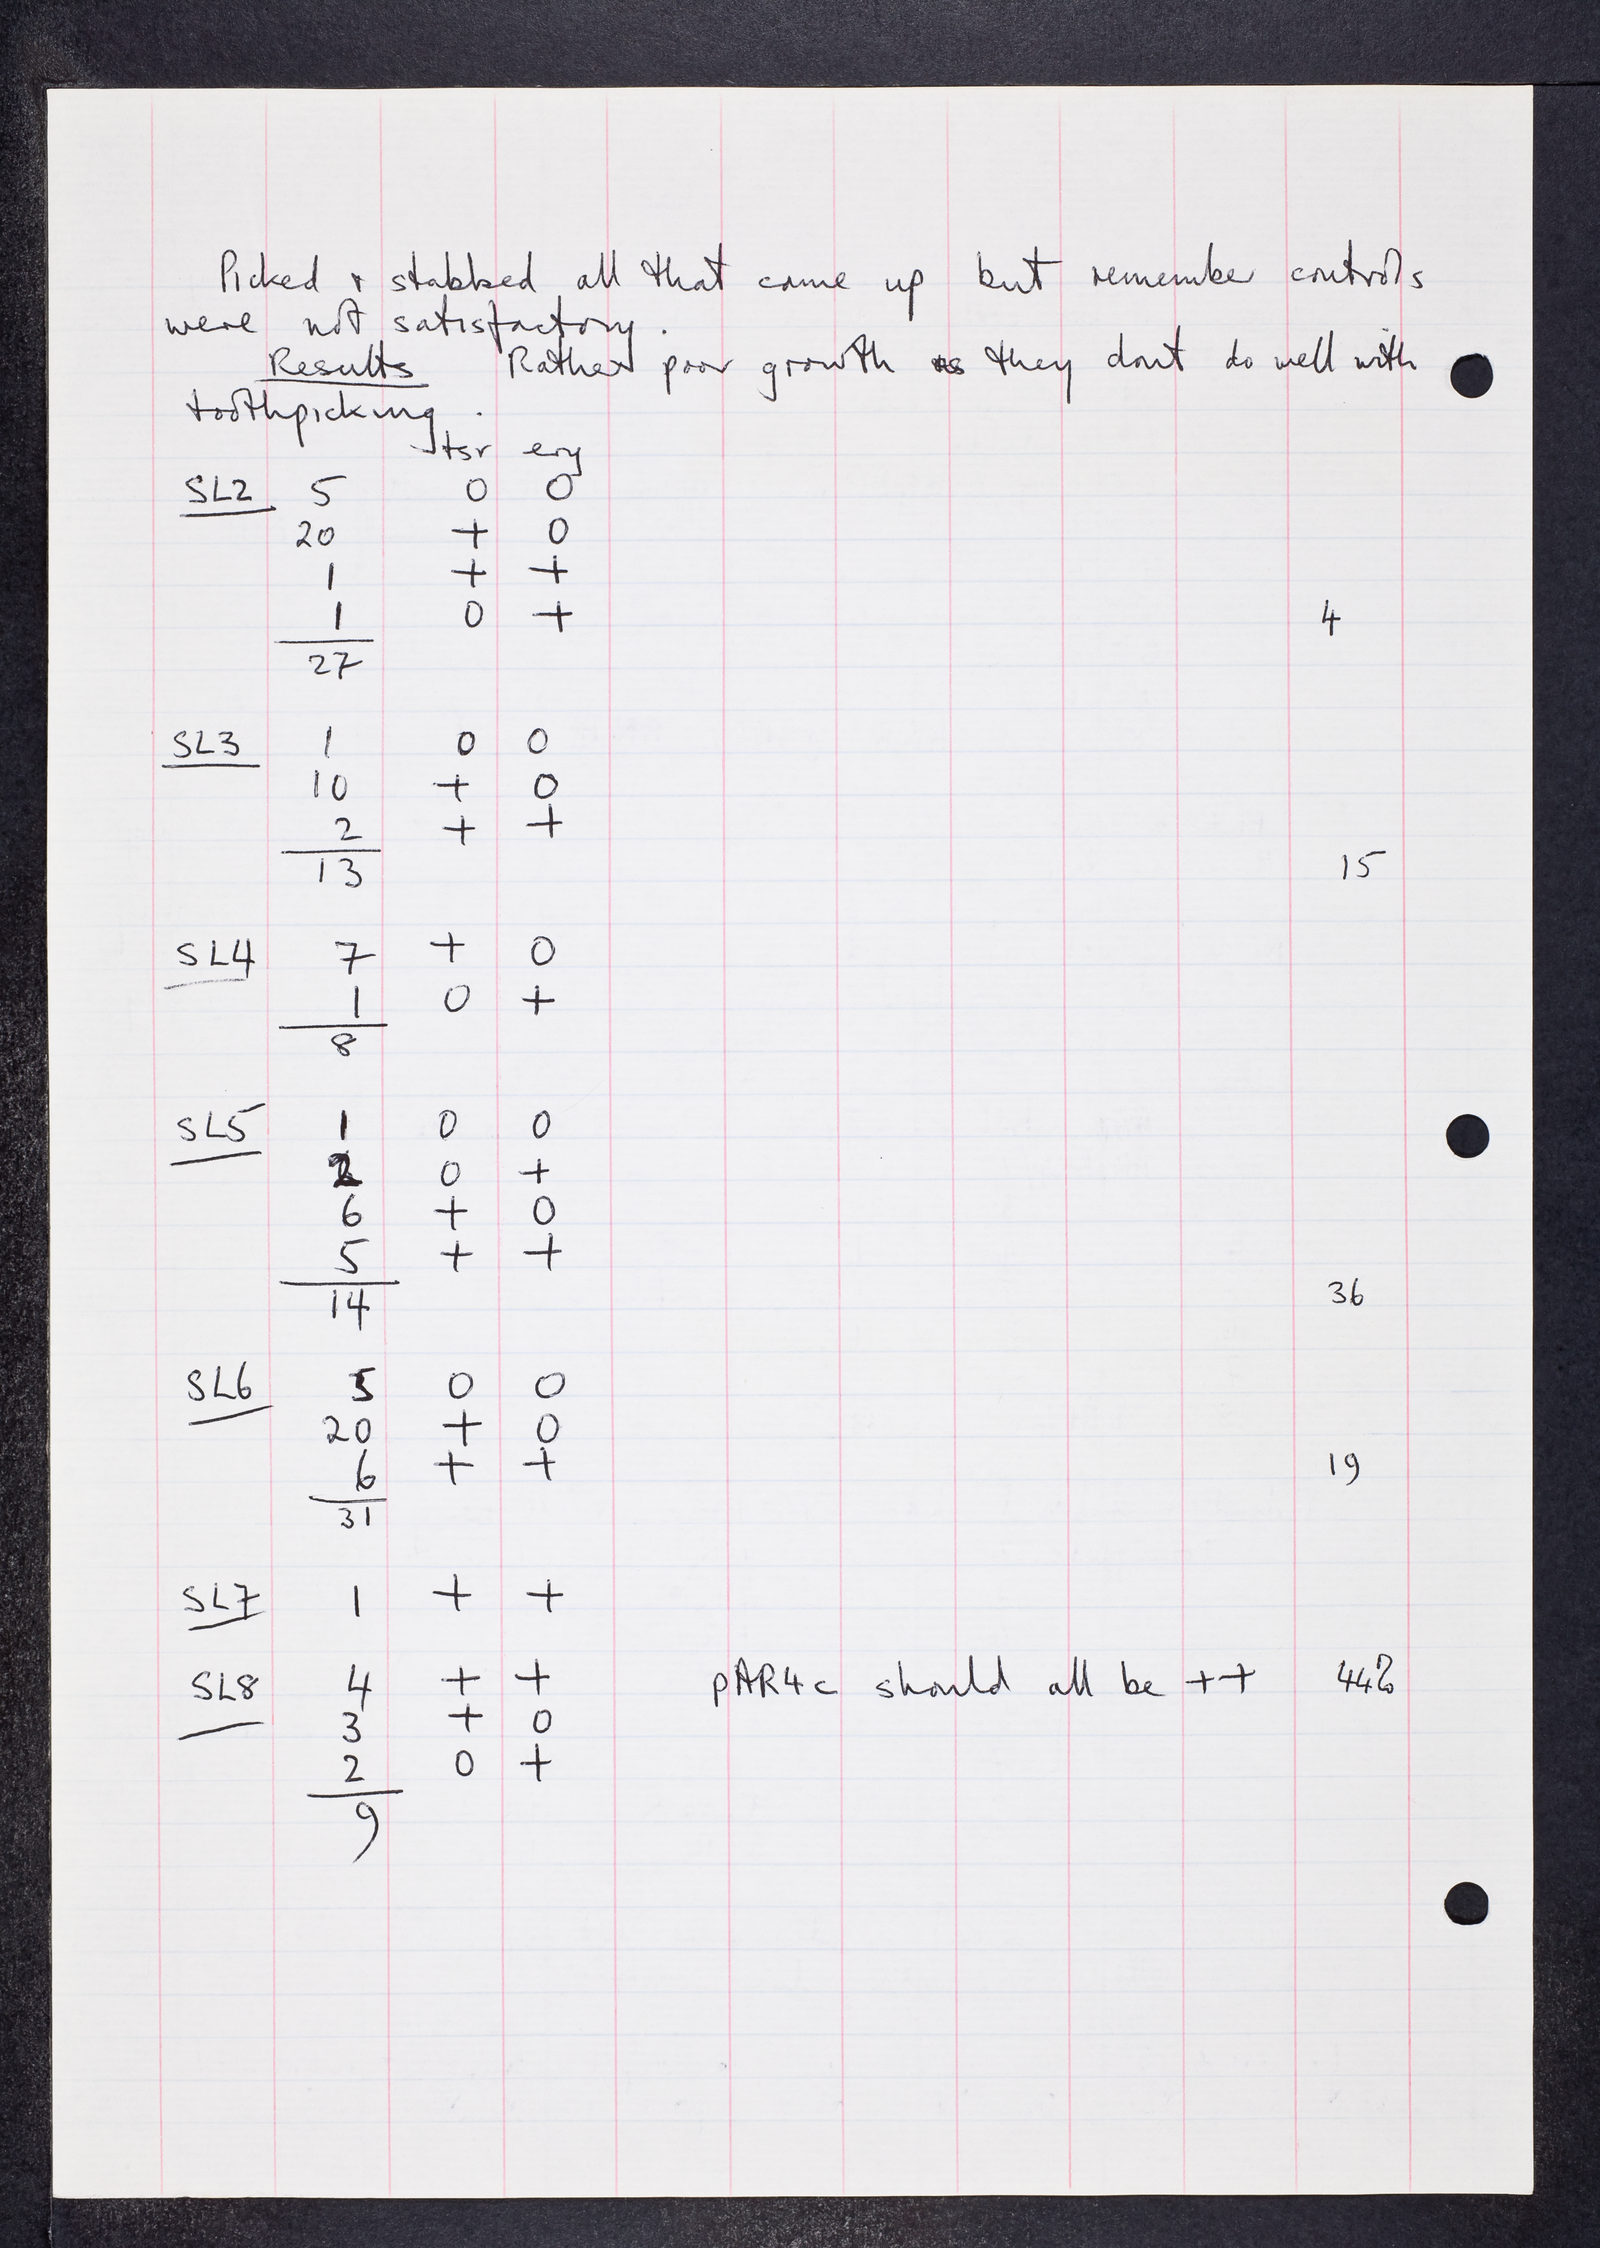 Picked & stabbed all that came up but remember controls
were not satisfactory.
Results Rather poor growth as they dont do well with
toothpicking.
tsr ery
SL2 5 0 0
20 + 0
1 + +
1 0 + 4
27
SL3 1 0 0
10 + 0
2 + +
13 15
SL4 7 + 0
1 0 +
8
SL5 1 0 0
2 0 +
6 + 0
5 + +
14 36
SL6 5 0 0
20 + 0
6 + + 19
31
SL7 1 + +
SL8 4 + + pAR4c should all be ++ 44%
3 + 0
2 0 +
9